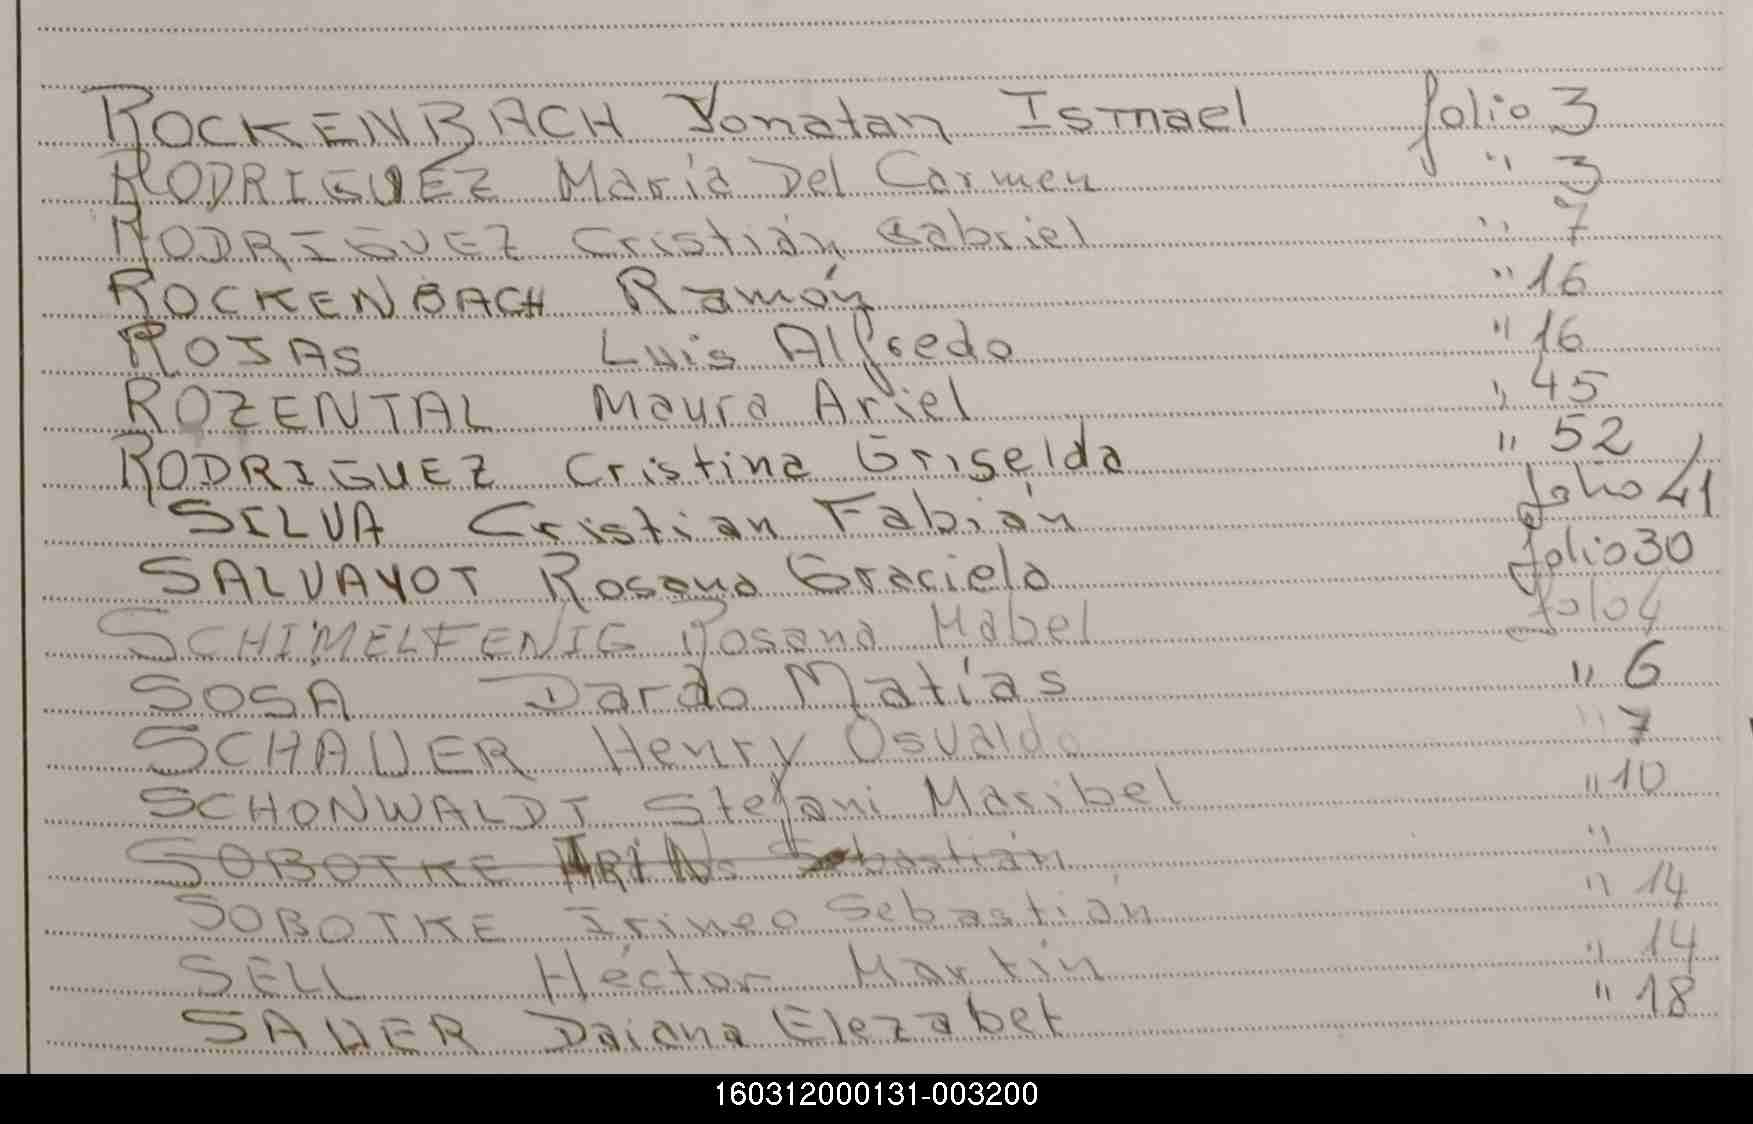 ROCKENBACH Yonatan Ismael folio 3
RODRIGUEZ María Del Carmen " 3
RODRIGUEZ Cristián Gabriel " 7
ROCKENBACH Ramón " 16
ROJAS Luis Alfredo " 16
ROZENTAL Mauro Ariel " 45
RODRIGUEZ Cristina Griselda " 52
SILVA Cristian Fabián folio 41
SALVAYOT Rosana Graciela folio 30
SCHIMELFENIG Rosana Mabel folo 4
SOSA Dardo Matías " 6
SCHAUER Henry Osvaldo " 7
SCHONWALDT Stefani Maribel " 10
SOBOTKE Sebastián "
SOBOTKE Irineo Sebastián " 14
SELL Héctor Martín " 14
SAUER Daiana Elezabet " 18
160312000131-003200